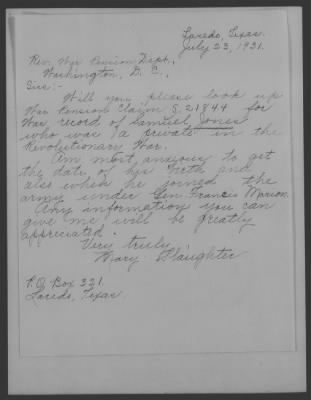 Laredo, Texas.
July 23, 1931.
Rev. War Pension Dept.,
Washington, D. C.,
Sirs:-
Will you please look up
War Pension Claim S. 21844 for
War record of Samuel Jones
who was a private in the
Revolutionary War.
Am most anxious to get
the date of his birth and
also when he joined the
army under Gen. Francis Marion.
Any information you can
give me will be greatly
appreciated.
Very truly,
Mary Slaughter
P.O. Box 331.
Laredo, Texas.